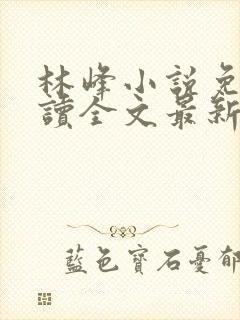 林峰小說免
讀全文最新
藍色寶石憂郁